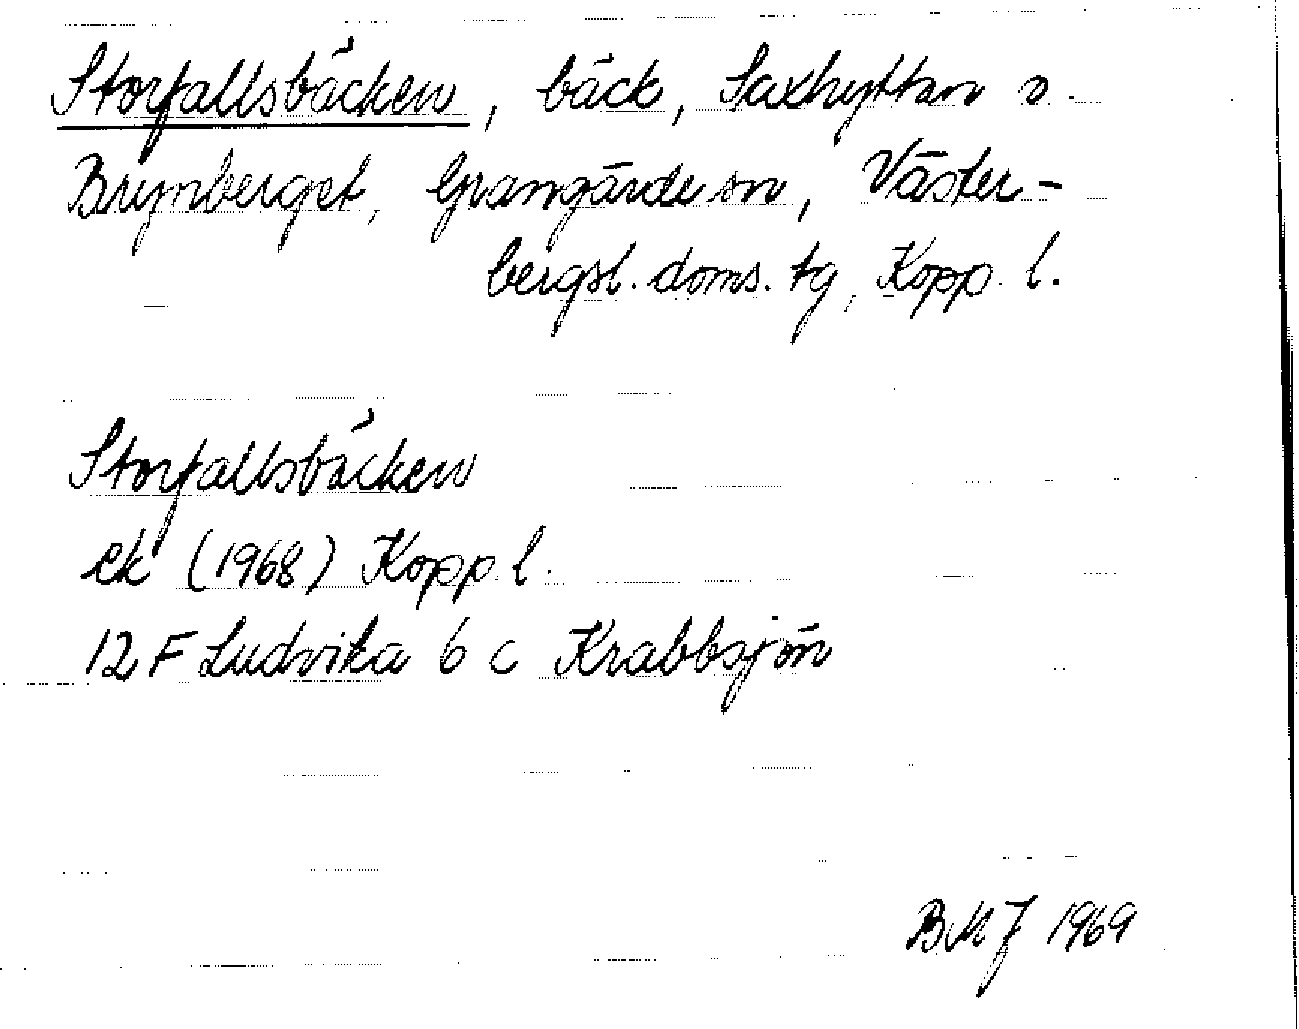 Storfallsbäcken, bäck, Saxhyttan o.
Brynberget, Grangärde sn, Väster-
bergsl. doms. tg, Kopp. l.
Storfallsbäcken
ek (1968) Kopp l.
12 F Ludvika 6 c Krabbsjön
BMJ 1969